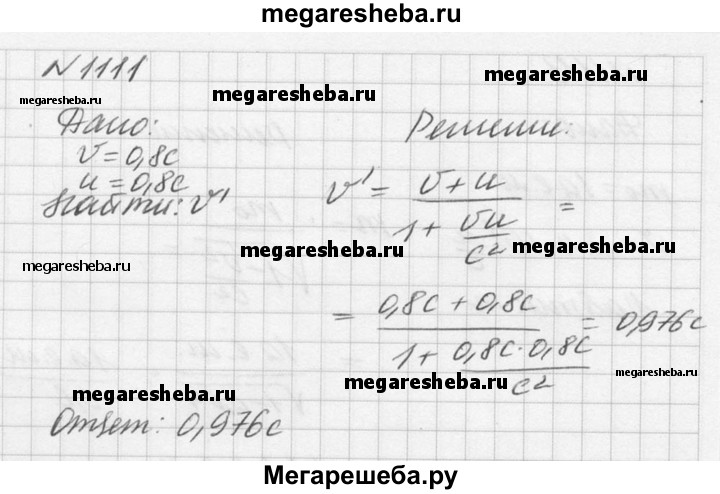 megaresheba.ru
N1111
megaresheba.ru
megaresheba.ru
Дано:
Решение:
v = 0,8c
u = 0,8c
Найти: v'
v' = (v + u) / (1 + vu/c²) =
megaresheba.ru
megaresheba.ru
megaresheba.ru
= (0,8c + 0,8c) / (1 + 0,8c·0,8c/c²) = 0,976c
megaresheba.ru
megaresheba.ru
megaresheba.ru
Ответ: 0,976c
Мегарешеба.ру